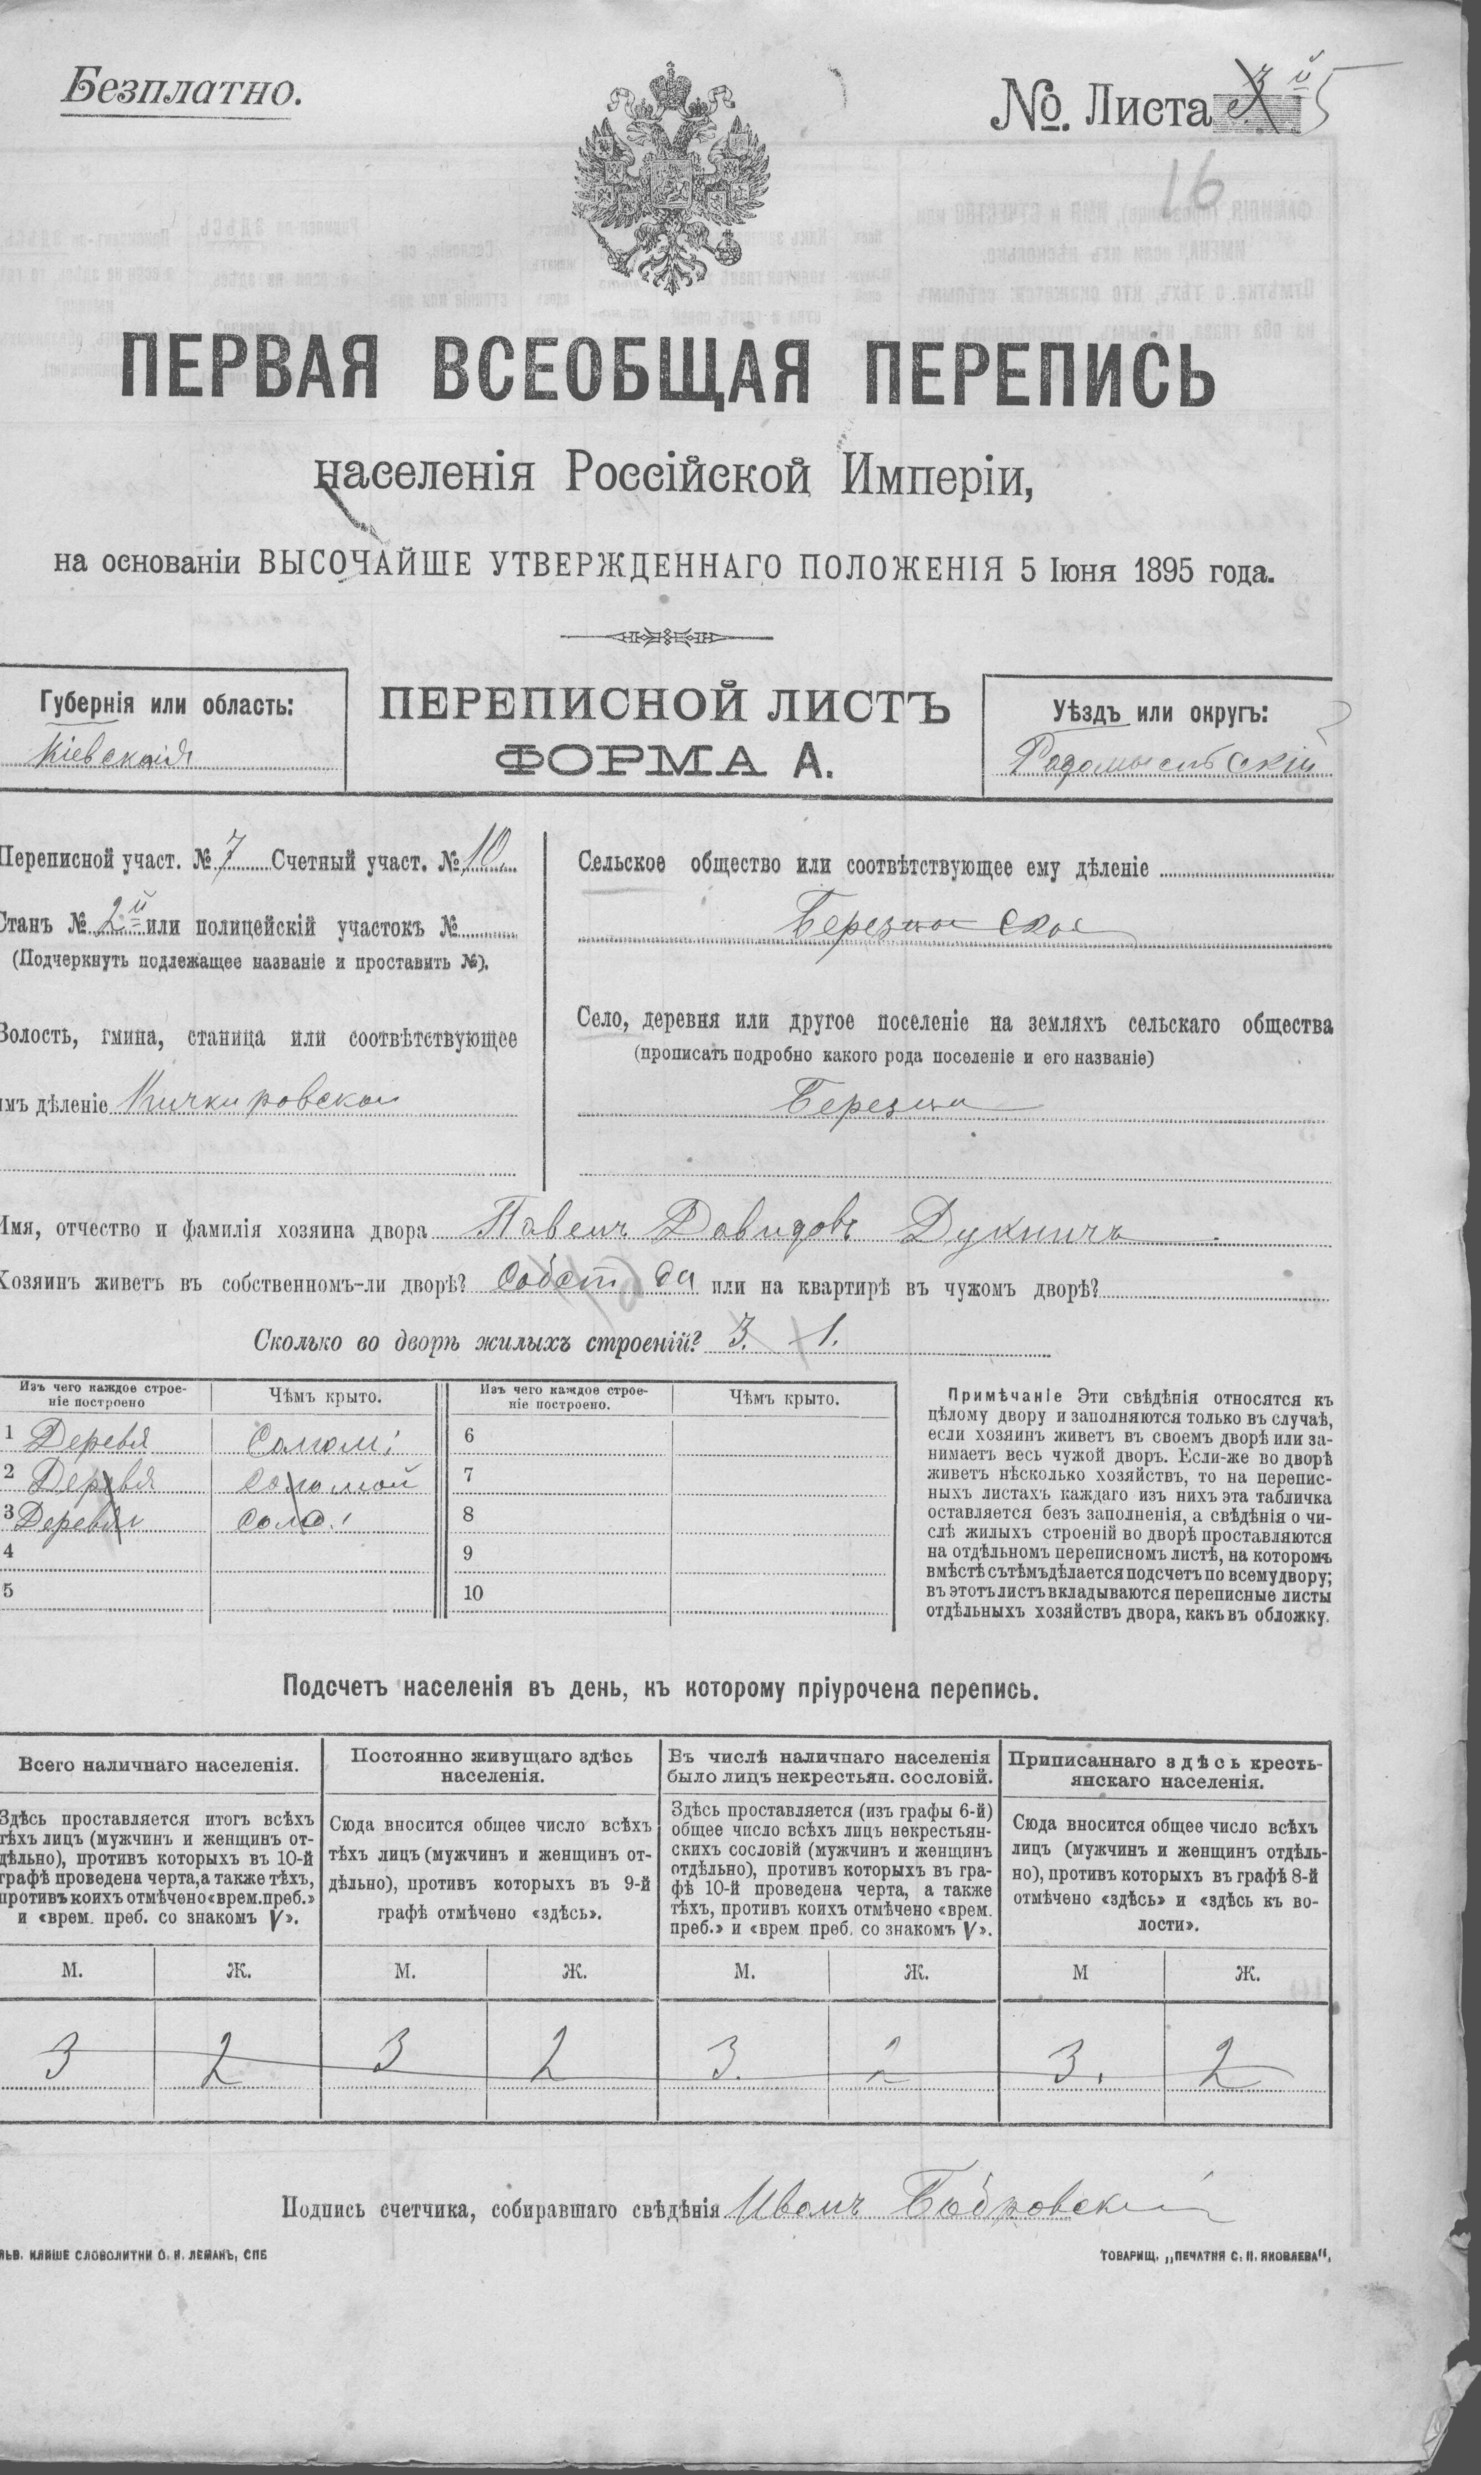 Безплатно.
№. Листа 3й 5
16
ПЕРВАЯ ВСЕОБЩАЯ ПЕРЕПИСЬ
населенія Россійской Имперіи,
на основаніи ВЫСОЧАЙШЕ УТВЕРЖДЕННАГО ПОЛОЖЕНІЯ 5 Іюня 1895 года.
Губернія или область:
Кіевская
ПЕРЕПИСНОЙ ЛИСТЪ
ФОРМА А.
Уѣздъ или округъ:
Радомысльскій
Переписной участ. № 7 Счетный участ. № 10.
Станъ № 2й или полицейскій участокъ №
(Подчеркнуть подлежащее названіе и проставить №).
Волость, гмина, станица или соотвѣтствующее
имъ дѣленіе Кичкировской
Сельское общество или соотвѣтствующее ему дѣленіе
Березицкое
Село, деревня или другое поселеніе на земляхъ сельскаго общества
(прописать подробно какого рода поселеніе и его названіе)
Березцы
Имя, отчество и фамилія хозяина двора Павелъ Давидовъ Дукничъ
Хозяинъ живетъ въ собственномъ-ли дворѣ? Собст да или на квартирѣ въ чужомъ дворѣ?
Сколько во дворѣ жилыхъ строеній? 3. 1.
Изъ чего каждое строе-
ніе построено
Чѣмъ крыто.
Изъ чего каждое строе-
ніе построено.
Чѣмъ крыто.
1 Деревя Солом:
2 Деревя Соломой
3 Деревян Соло:
4
5
6
7
8
9
10
Примѣчаніе Эти свѣдѣнія относятся къ
цѣлому двору и заполняются только въ случаѣ,
если хозяинъ живетъ въ своемъ дворѣ или за-
нимаетъ весь чужой дворъ. Если-же во дворѣ
живетъ нѣсколько хозяйствъ, то на перепис-
ныхъ листахъ каждаго изъ нихъ эта табличка
оставляется безъ заполненія, а свѣдѣнія о чи-
слѣ жилыхъ строеній во дворѣ проставляются
на отдѣльномъ переписномъ листѣ, на которомъ
вмѣстѣ съ тѣмъ дѣлается подсчетъ по всему двору;
въ этотъ листъ вкладываются переписные листы
отдѣльныхъ хозяйствъ двора, какъ въ обложку.
Подсчетъ населенія въ день, къ которому пріурочена перепись.
Всего наличнаго населенія.
Здѣсь проставляется итогъ всѣхъ
тѣхъ лицъ (мужчинъ и женщинъ от-
дѣльно), противъ которыхъ въ 10-й
графѣ проведена черта, а также тѣхъ,
противъ коихъ отмѣчено «врем. преб.»
и «врем. преб. со знакомъ V».
Постоянно живущаго здѣсь
населенія.
Сюда вносится общее число всѣхъ
тѣхъ лицъ (мужчинъ и женщинъ от-
дѣльно), противъ которыхъ въ 9-й
графѣ отмѣчено «здѣсь».
Въ числѣ наличнаго населенія
было лицъ некрестьян. сословій.
Здѣсь проставляется (изъ графы 6-й)
общее число всѣхъ лицъ некрестьян-
скихъ сословій (мужчинъ и женщинъ
отдѣльно), противъ которыхъ въ гра-
фѣ 10-й проведена черта, а также
тѣхъ, противъ коихъ отмѣчено «врем.
преб.» и «врем преб. со знакомъ V».
Приписаннаго здѣсь кресть-
янскаго населенія.
Сюда вносится общее число всѣхъ
лицъ (мужчинъ и женщинъ отдѣль-
но), противъ которыхъ въ графѣ 8-й
отмѣчено «здѣсь» и «здѣсь къ во-
лости».
М. Ж. М. Ж. М. Ж. М Ж.
3 2 3 2 3. 2 3. 2
Подпись счетчика, собиравшаго свѣдѣнія Иванъ Бобровскій
ЛЬВ. КЛИШЕ СЛОВОЛИТНИ О. И. ЛЕМАНЪ, СПБ
ТОВАРИЩ. „ПЕЧАТНЯ С. П. ЯКОВЛЕВА“,